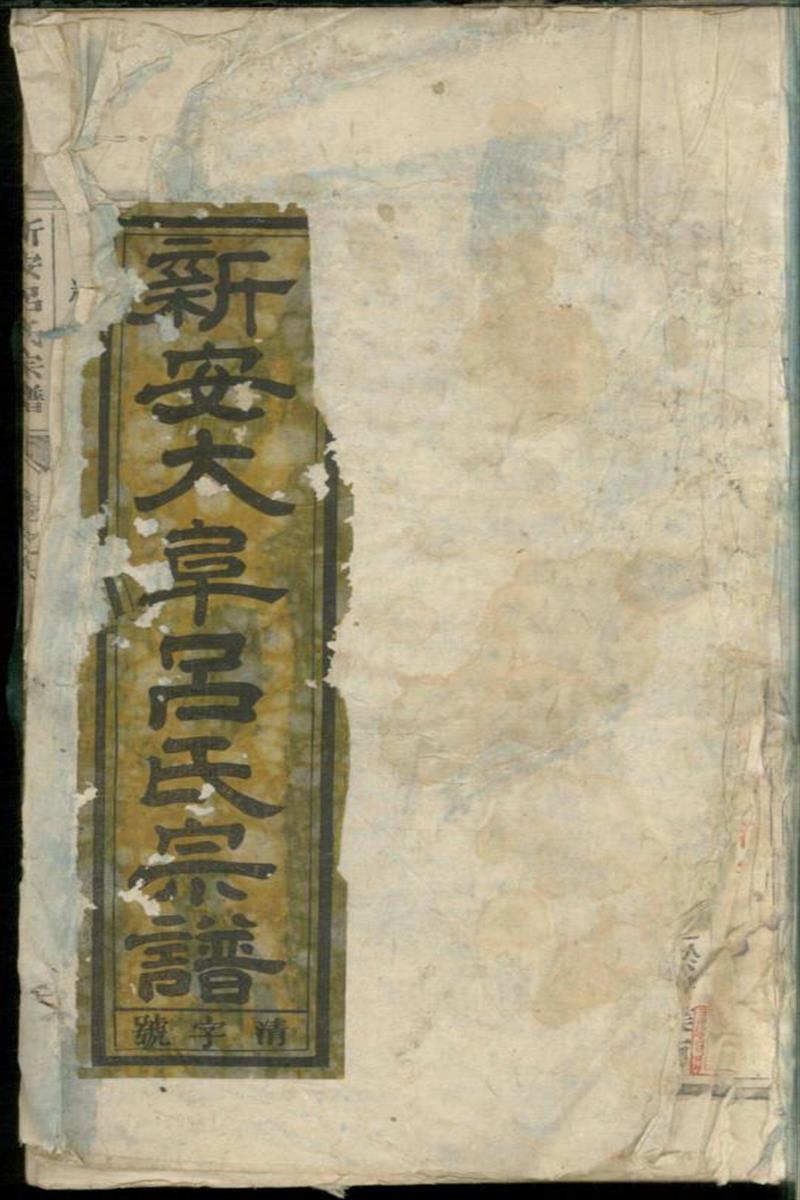 新安大阜呂氏宗譜
清字號
新安呂氏宗譜